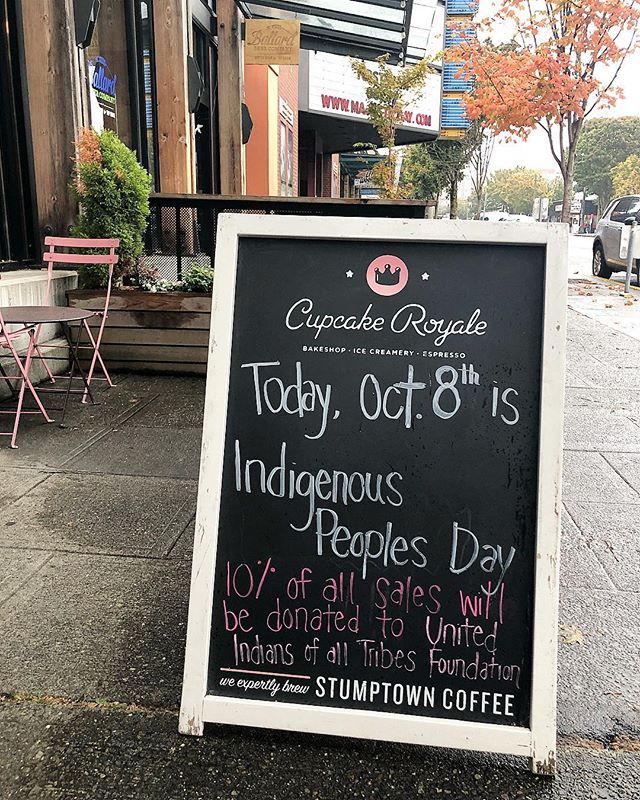 Ballard
BEER COMPANY
Ballard
WWW.MA
Cupcake Royale
BAKESHOP · ICE CREAMERY · ESPRESSO
Today, Oct. 8th is
Indigenous
Peoples Day
10% of all sales will
be donated to United
Indians of all Tribes Foundation
we expertly brew STUMPTOWN COFFEE